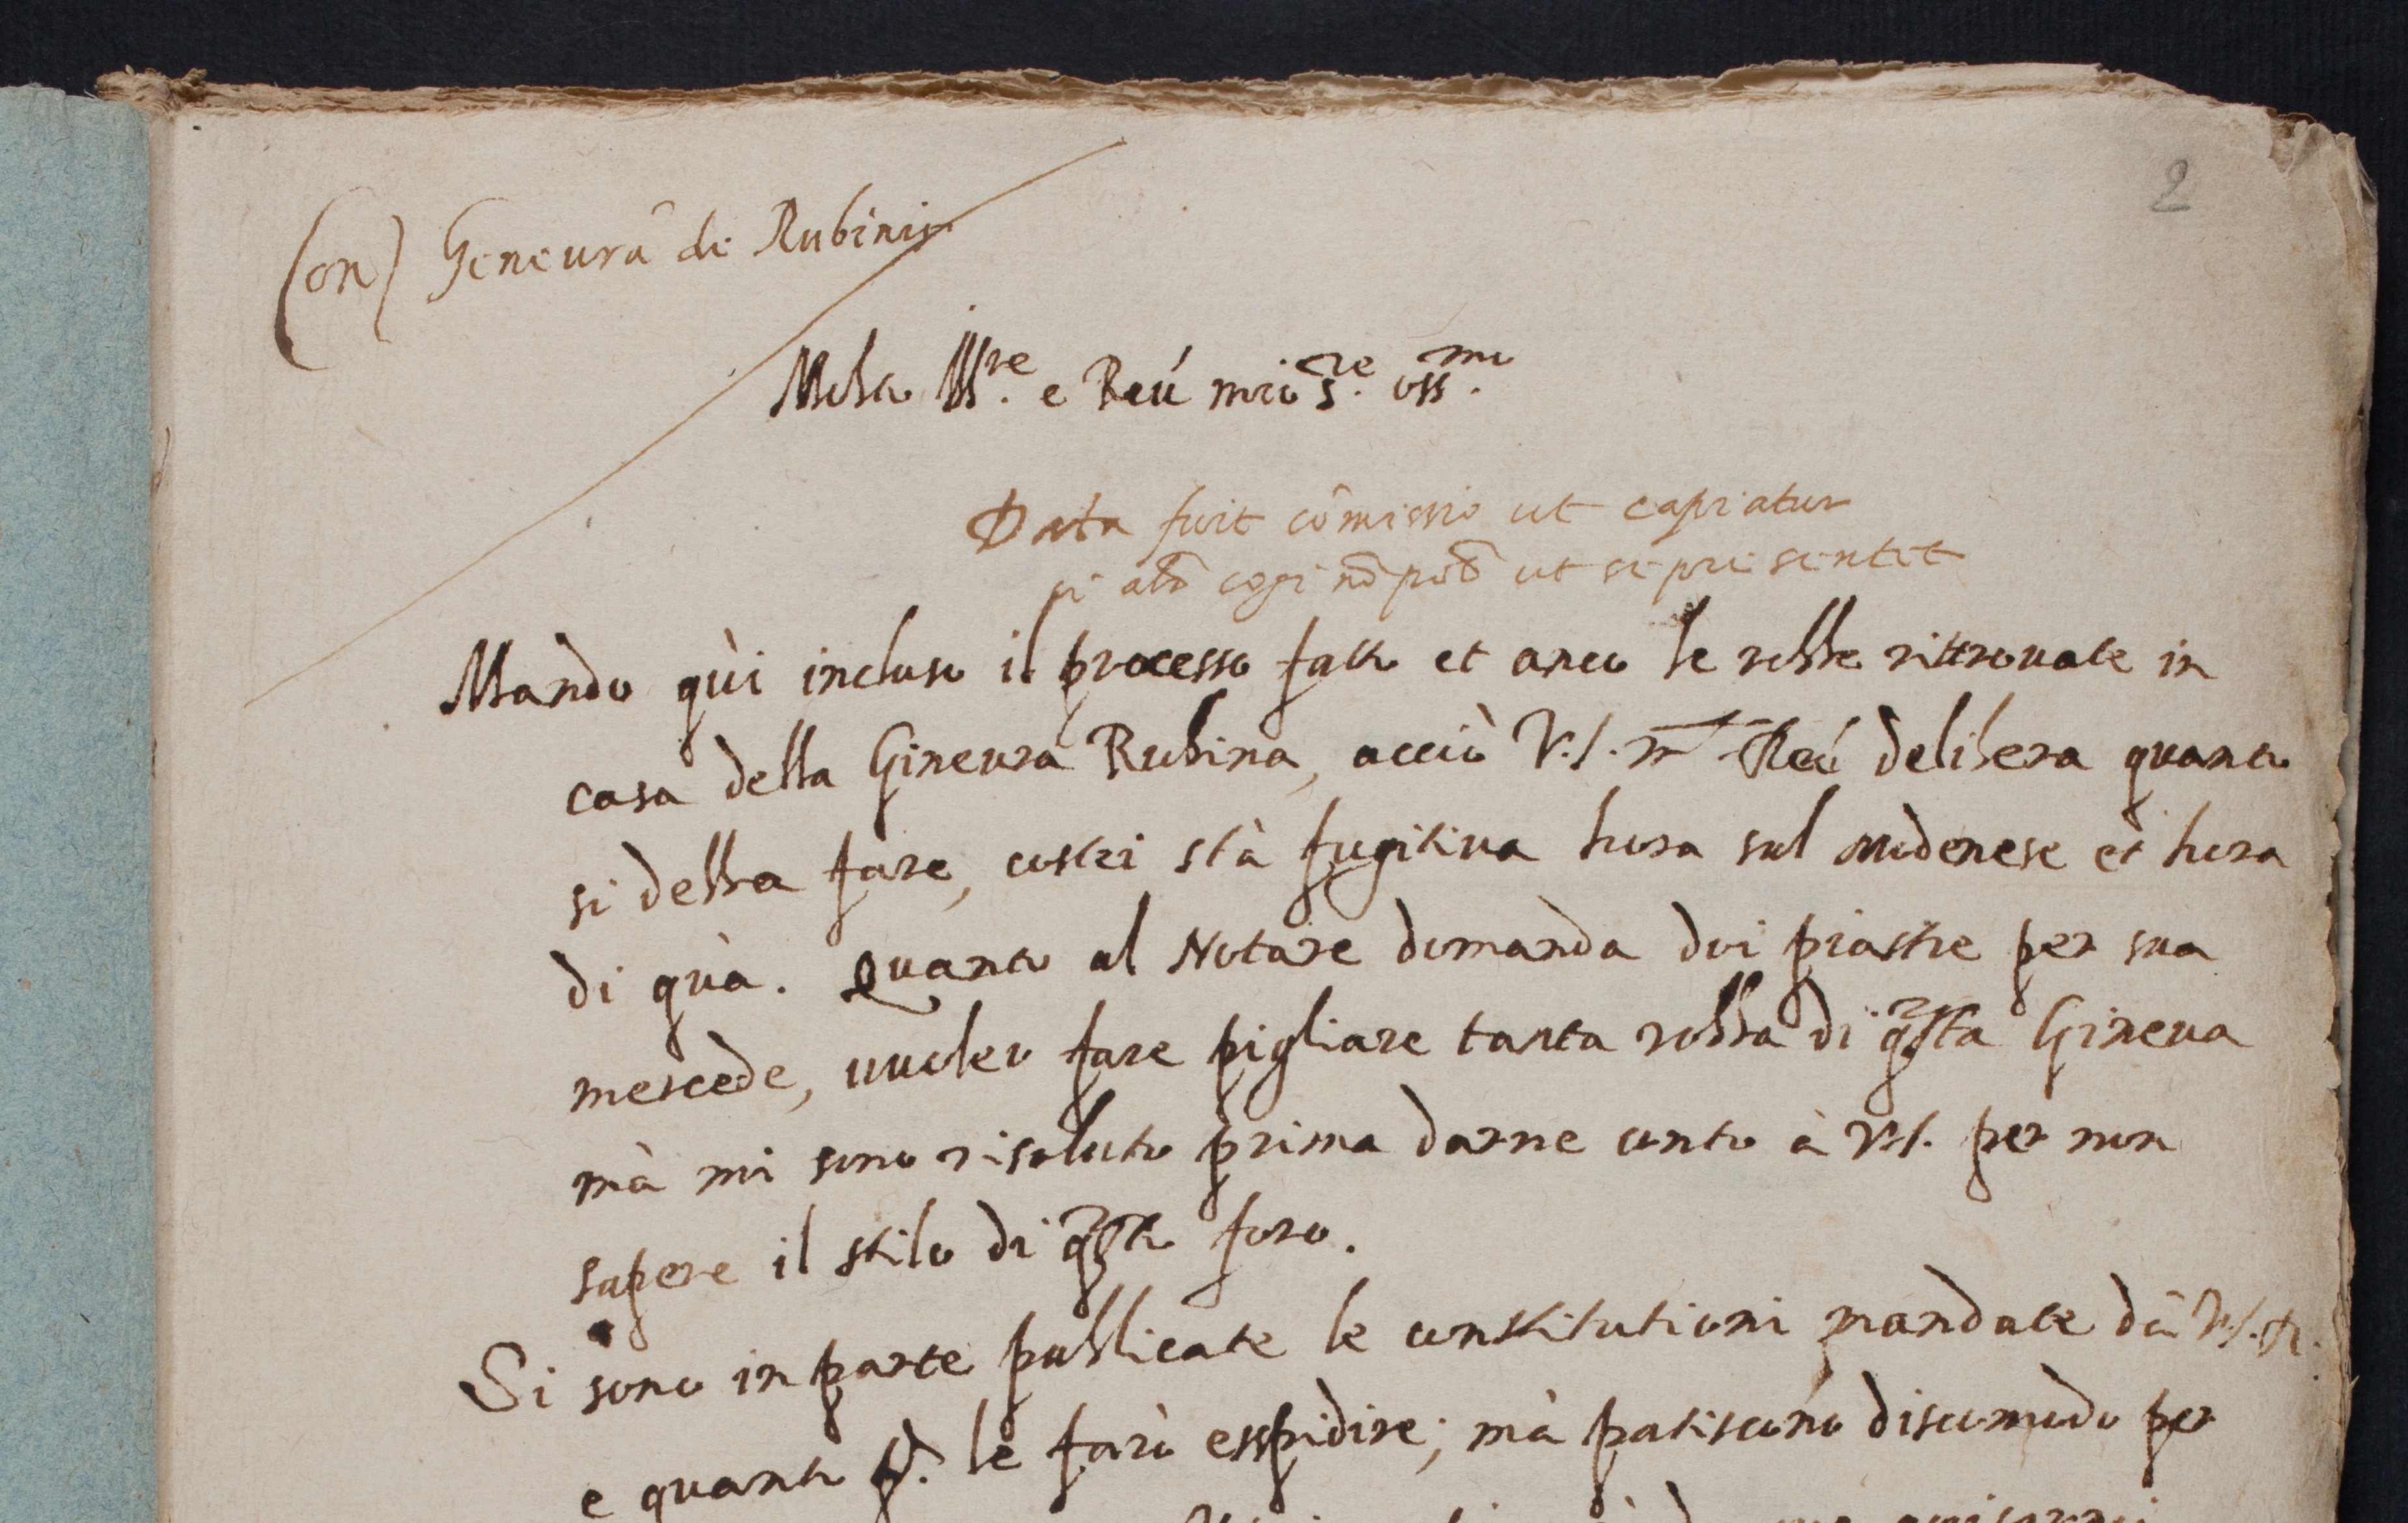 2
(on) Geneura de Rubinis
Molto Ill.re e Reu mio S.re oss.mo
Data fuit cõmissio ut capiatur
si cogi nõ ut se presentet
Mando qùi incluso il processo fatto et anco le robbe rittrouate in
casa della Gineura Rubina, acciò V.S. m Reu delibera quanto
si debba fare, costei stà fugitiua hora sul modenese et hora
di quà. Quanto al Notare domanda doi piastre per sua
mercede, uuoleuo fare pigliare tanta robba di qsta Gineua
mà mi sono risoluto prima darne conto à V.S. per non
sapere il stilo di qsto foro.
Si sono in parte publicate le constitutioni mandate dà V.S. R.
e quanto p. le farò esspidire; mà patiscono discomodo per